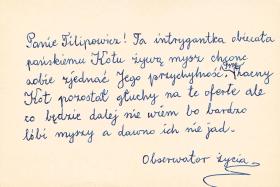 Panie Filipowicz! Ta intrygantka obiecała
pańskiemu Kotu żywą mysz chcąc
sobie zjednać Jego przychylność. Zacny
Kot pozostał głuchy na te oferte ale
co będzie dalej nie wiem bo bardzo
lubi myszy a dawno ich nie jad.
Obserwator życia